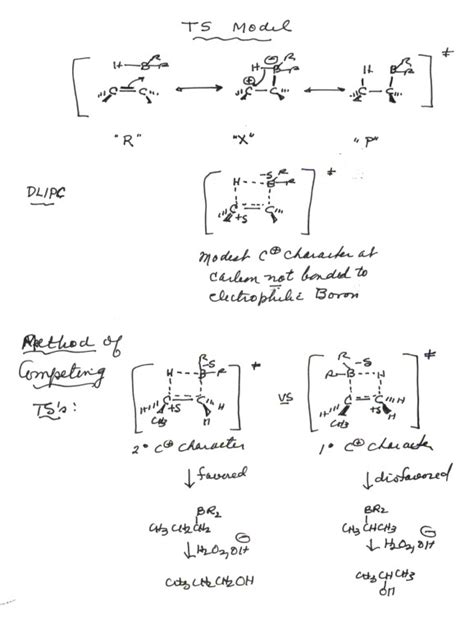 TS Model
H—BR R
C=C
⊕ C—C H—B⊖ R R
C—C H B R R
‡
"R" "X" "P"
DLIPC
H---B -S R R
C=C +S
‡
Modest C⊕ character at
carbon not bonded to
electrophilic Boron
Method of
Competing
TS's:
H---B -S R R
C=C +S
H CH3 H H
‡
vs
R—B R -S H
C=C +S
H CH3 H H
‡
2° C⊕ character
1° C⊕ character
↓ favored
↓ disfavored
BR2
CH3CH2CH2
BR2
CH3CHCH3
↓ H2O2, OH⊖
↓ H2O2, OH⊖
CH3CH2CH2OH
CH3CHCH3
OH